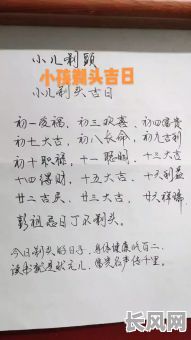 小儿剃頭
小孩剃头吉日
小儿剃头吉日
初一 初三 初四富貴
初七大吉，初八长命，初九吉利
初十职禄，十一聪明，十三大吉
十四得财，十五大吉，十六利益
廿二吉 廿三大吉，廿六
彭祖忌日丁不剃头。
今日剃头的日子，身体健康
读书 状元 名声传千里。
长风网